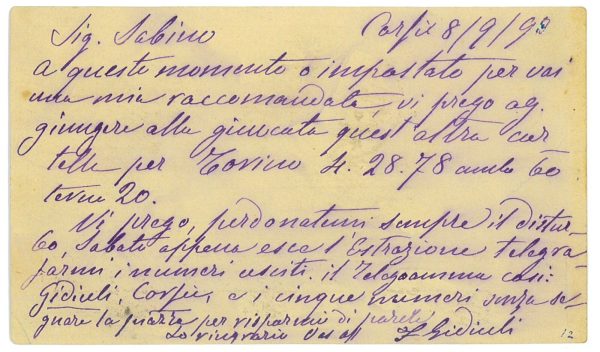 Sig. Sabino Corfù 8/9/93
a questo momento o impostato per voi
una mia raccomandata, vi prego ag-
giungere alla giuocata quest'altra car
tella per Torino 4. 28. 78 ambo 60
terno 20.
Vi prego, perdonatemi sempre il distur-
bo, Sabato appena esce l'Estrazione telegra-
farmi i numeri usciti. il Telegramma così:
Gidiuli, Corfù, e i cinque numeri senza se-
gnare la piazza per risparmio di parole
Lo ringrazio
Gidiuli
12